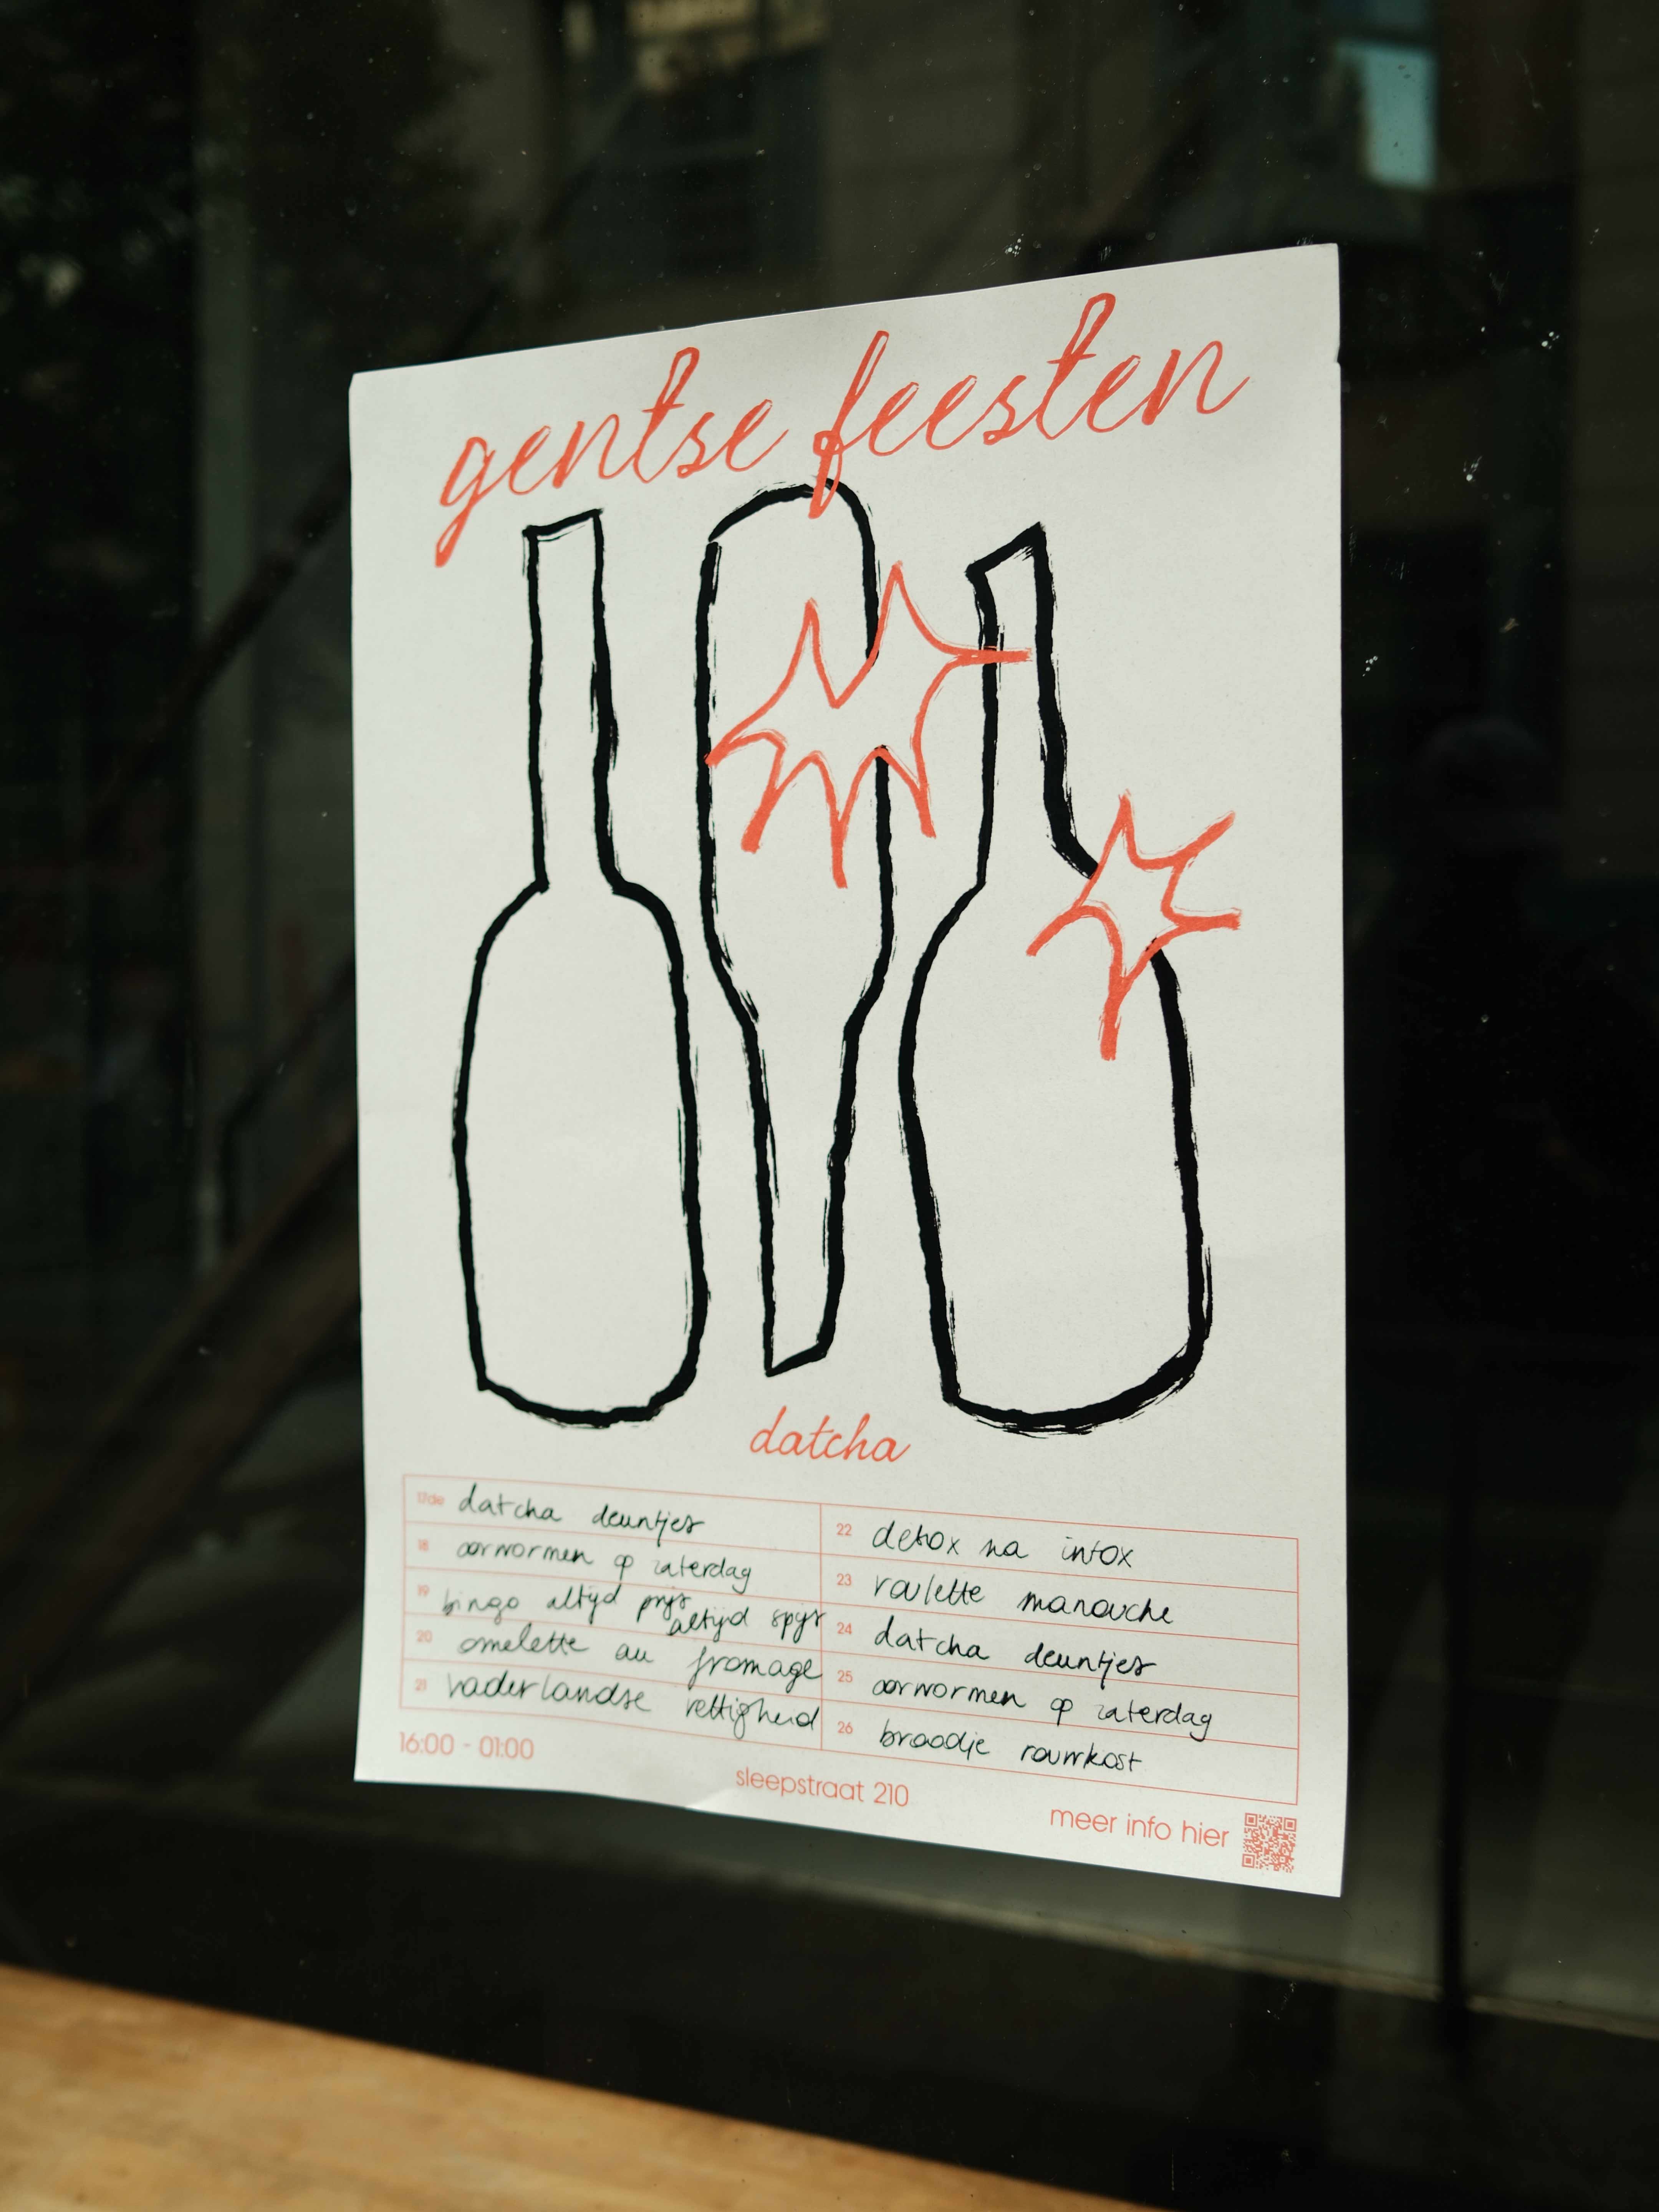 gentse feesten
datcha
17de datcha deuntjes
18 oorwormen op zaterdag
19 bingo altijd prijs altijd spijt
20 omelette au fromage
21 vaderlandse vettigheid
22 detox na intox
23 roulette manouche
24 datcha deuntjes
25 oorwormen op zaterdag
26 broodje rouwkost
16:00 - 01:00
sleepstraat 210
meer info hier